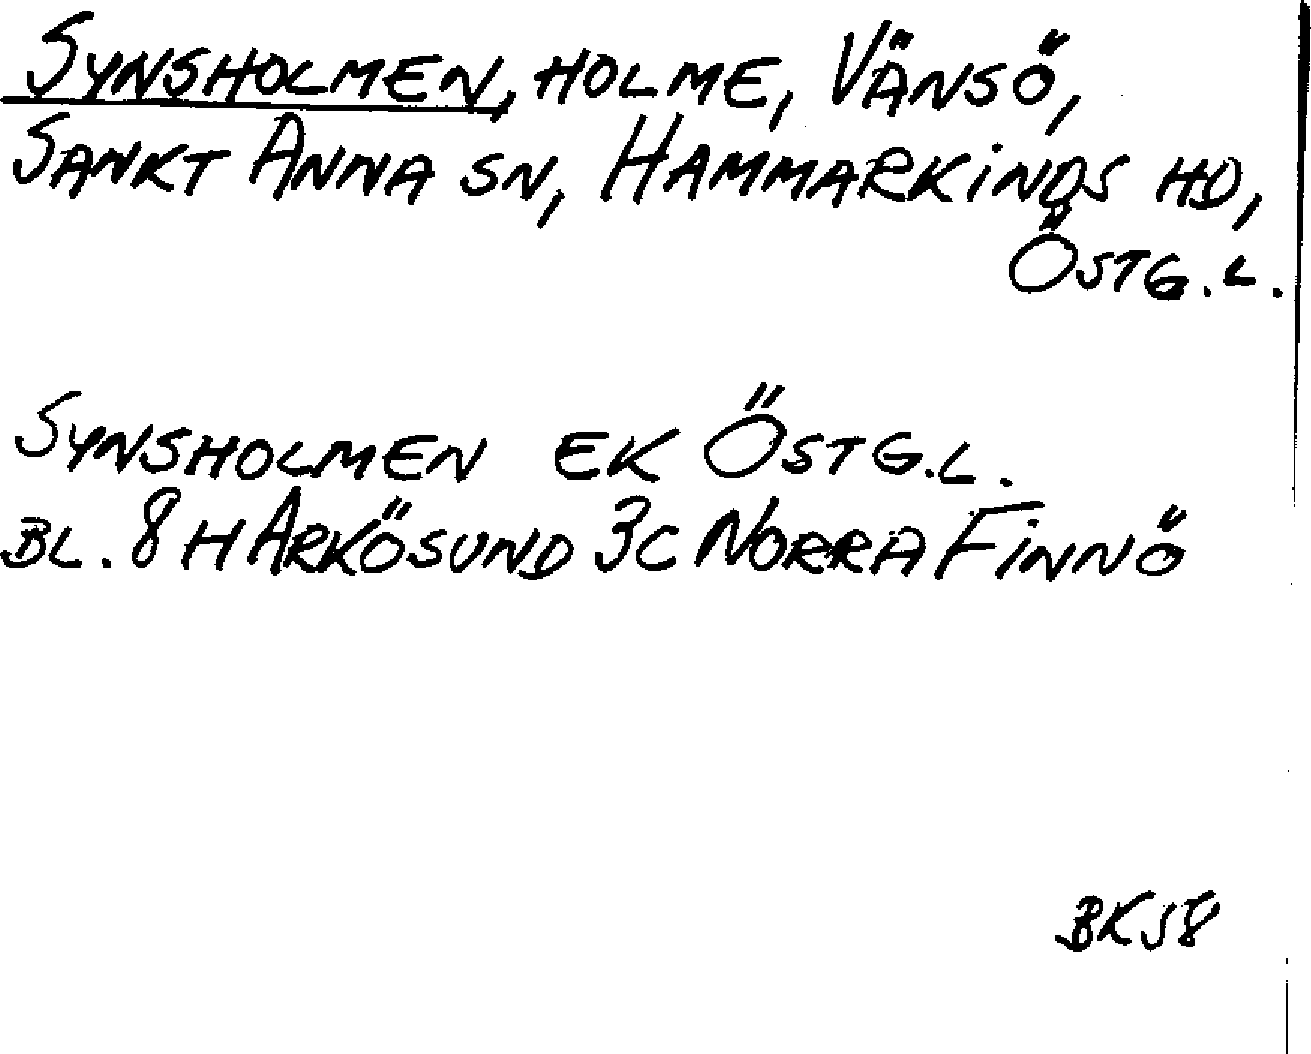 SYNSHOLMEN, HOLME, VÄNSÖ,
SANKT ANNA SN, HAMMARKINDS HD,
ÖSTG.L.
SYNSHOLMEN EK ÖSTG.L.
BL. 8H ARKÖSUND 3C NORRA FINNÖ
BK58